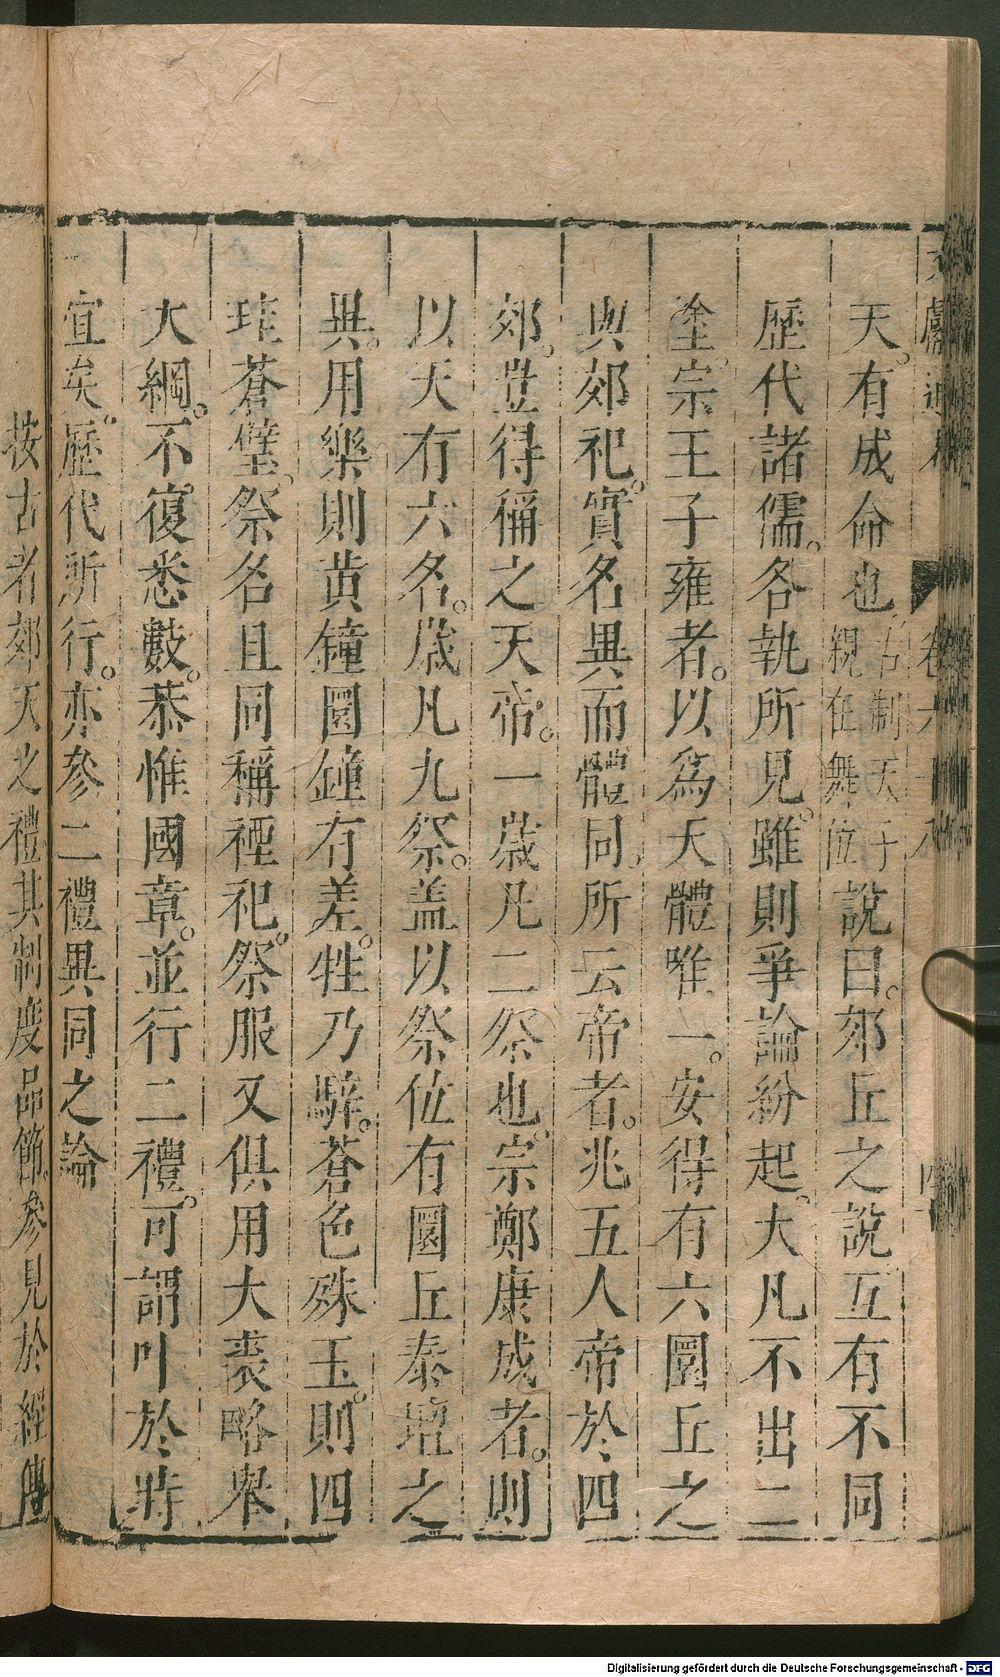 天有成命也古制天子親在舞位說曰。郊丘之說互有不同
歷代諸儒。各執所見。雖則爭論紛起。大凡不出二
塗。宗王子雍者。以爲天體唯一。安得有六圜丘之
與郊祀。實名異而體同。所云帝者。兆五人帝於四
郊。豈得稱之天帝。一歲凡二祭也。宗鄭康成者。則
以天有六名。歲凡九祭。盖以祭位有圜丘泰壇之
異。用樂則黃鐘圜鐘有差。牲乃騂。蒼色殊玉。則四
珪蒼璧。祭名且同稱禋祀。祭服又俱用大裘略舉
大綱。不復悉數。恭惟國章。並行二禮。可謂叶於時
宜矣。歷代所行。亦參二禮異同之論
按古者郊天之禮其制度品節。參見於經傳
Digitalisierung gefördert durch die Deutsche Forschungsgemeinschaft - DFG